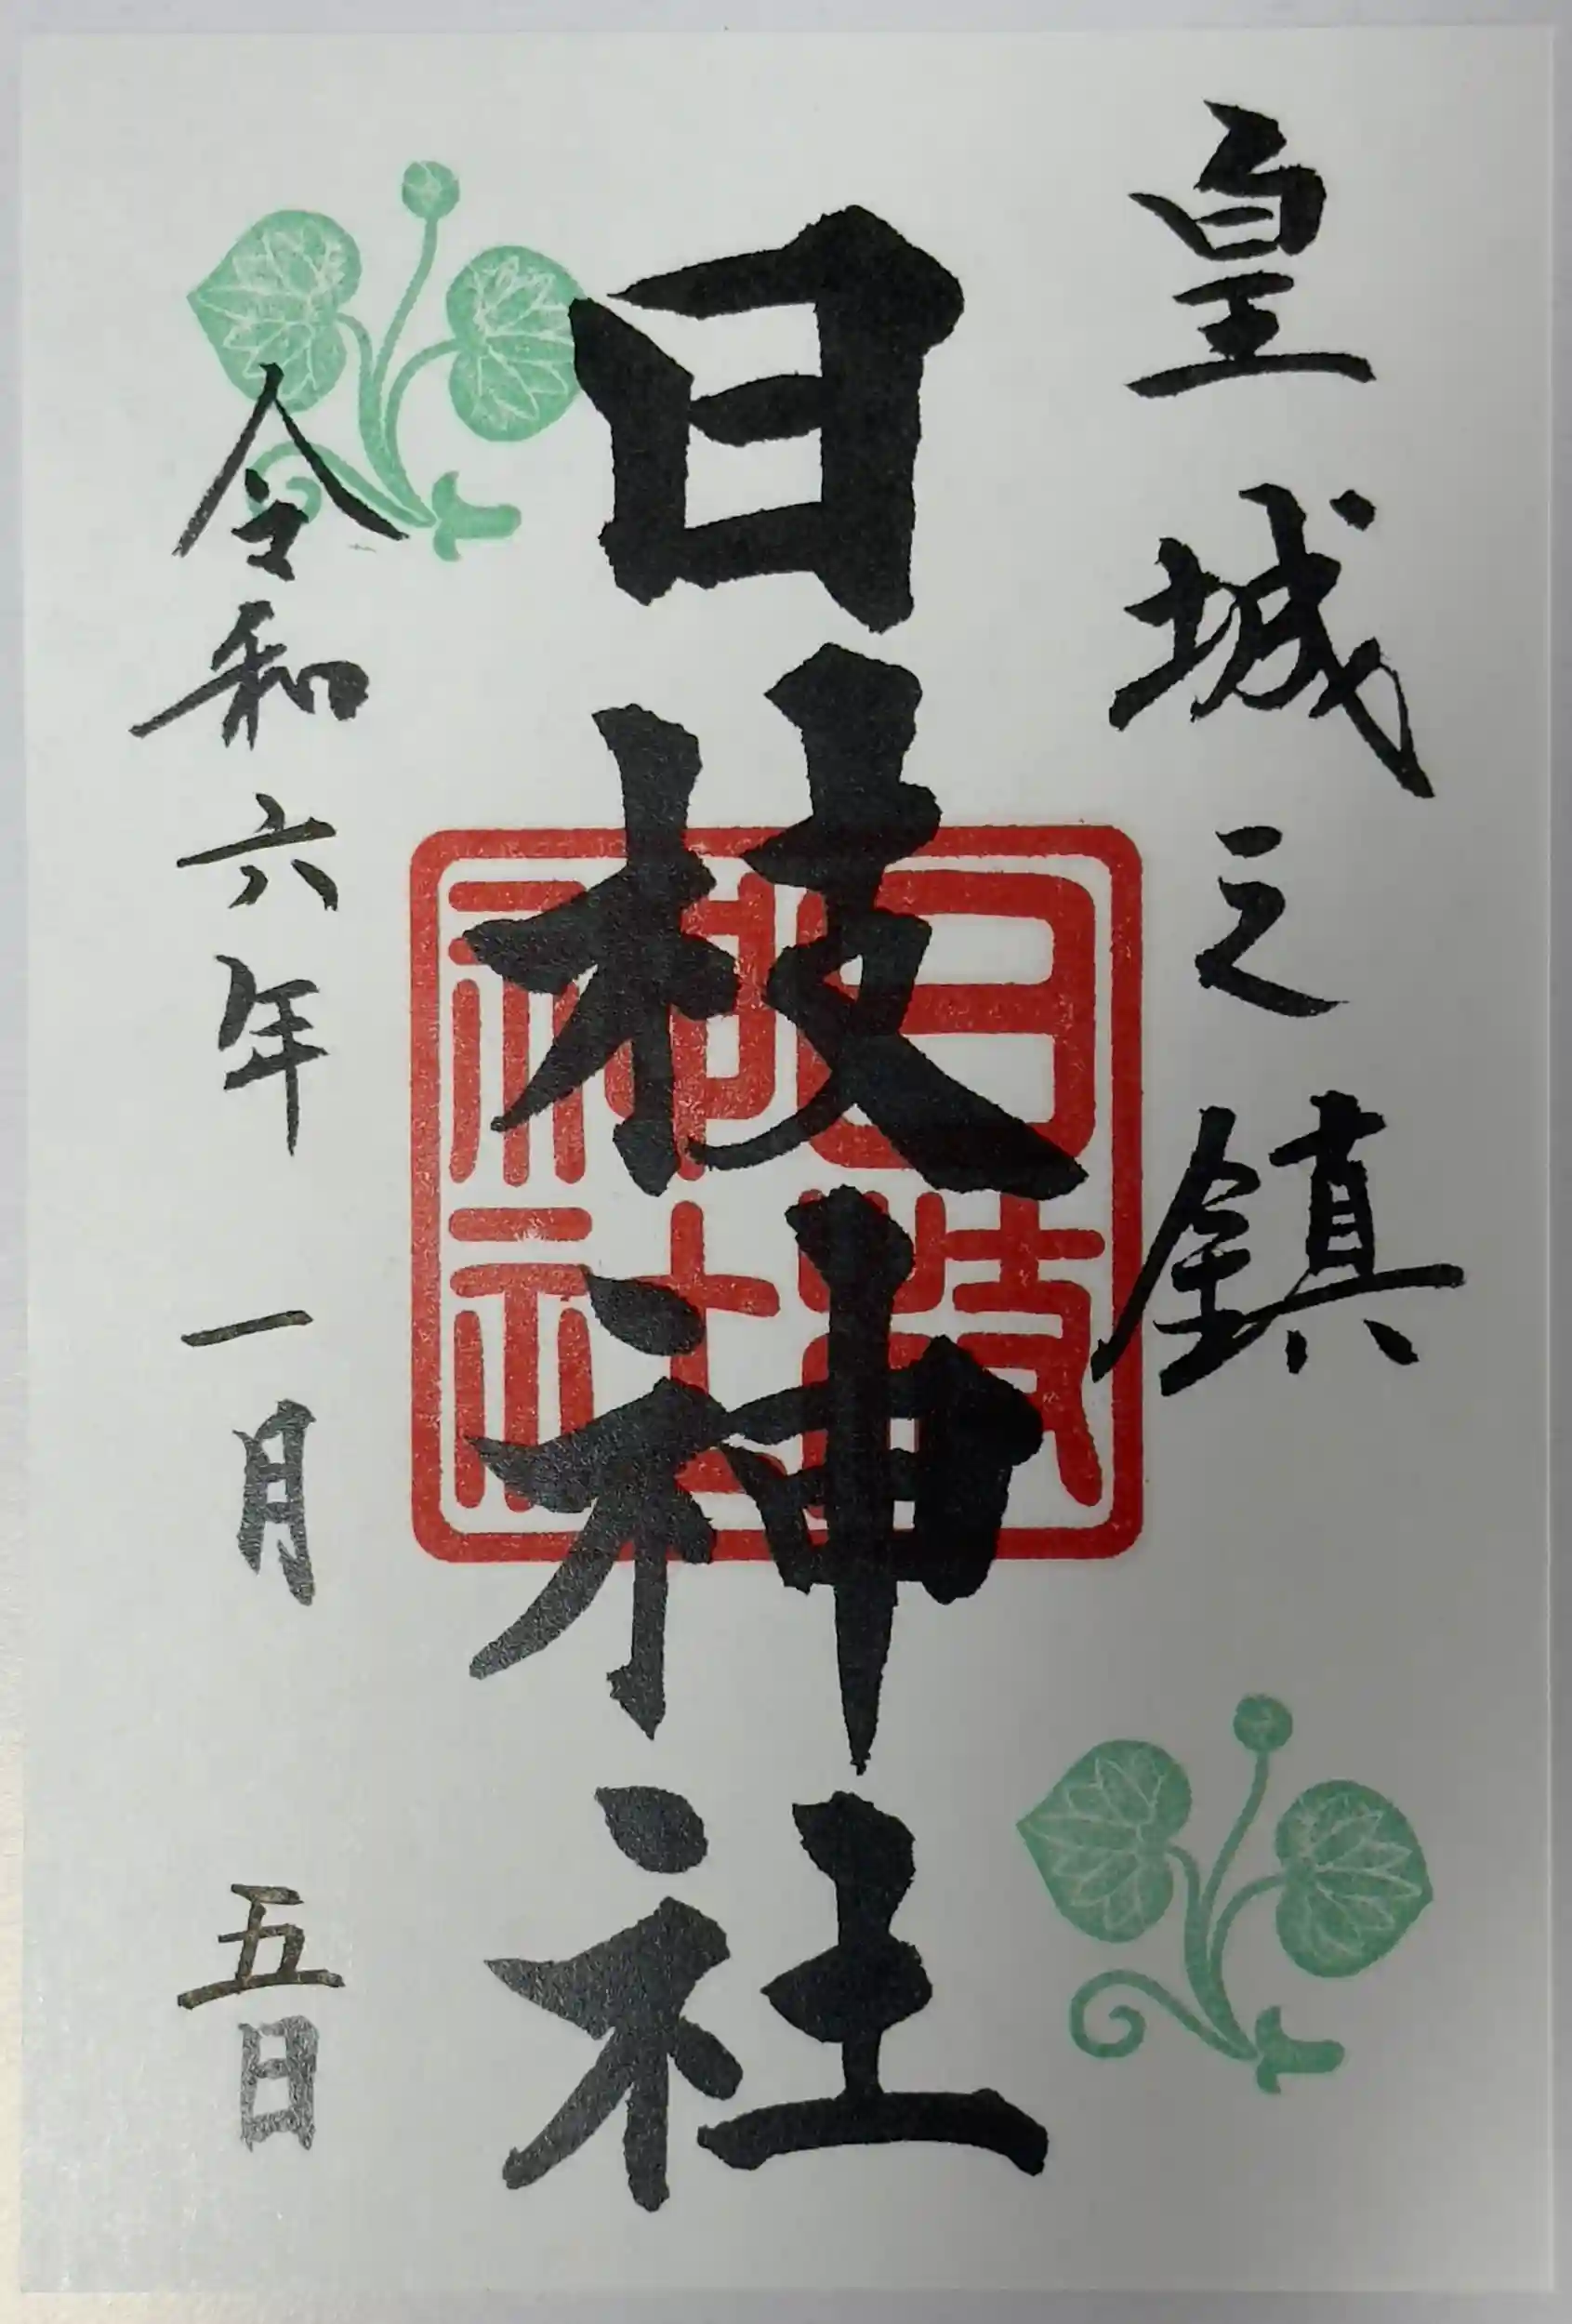 皇城之鎮
日枝神社
日枝神社
令和六年一月五日